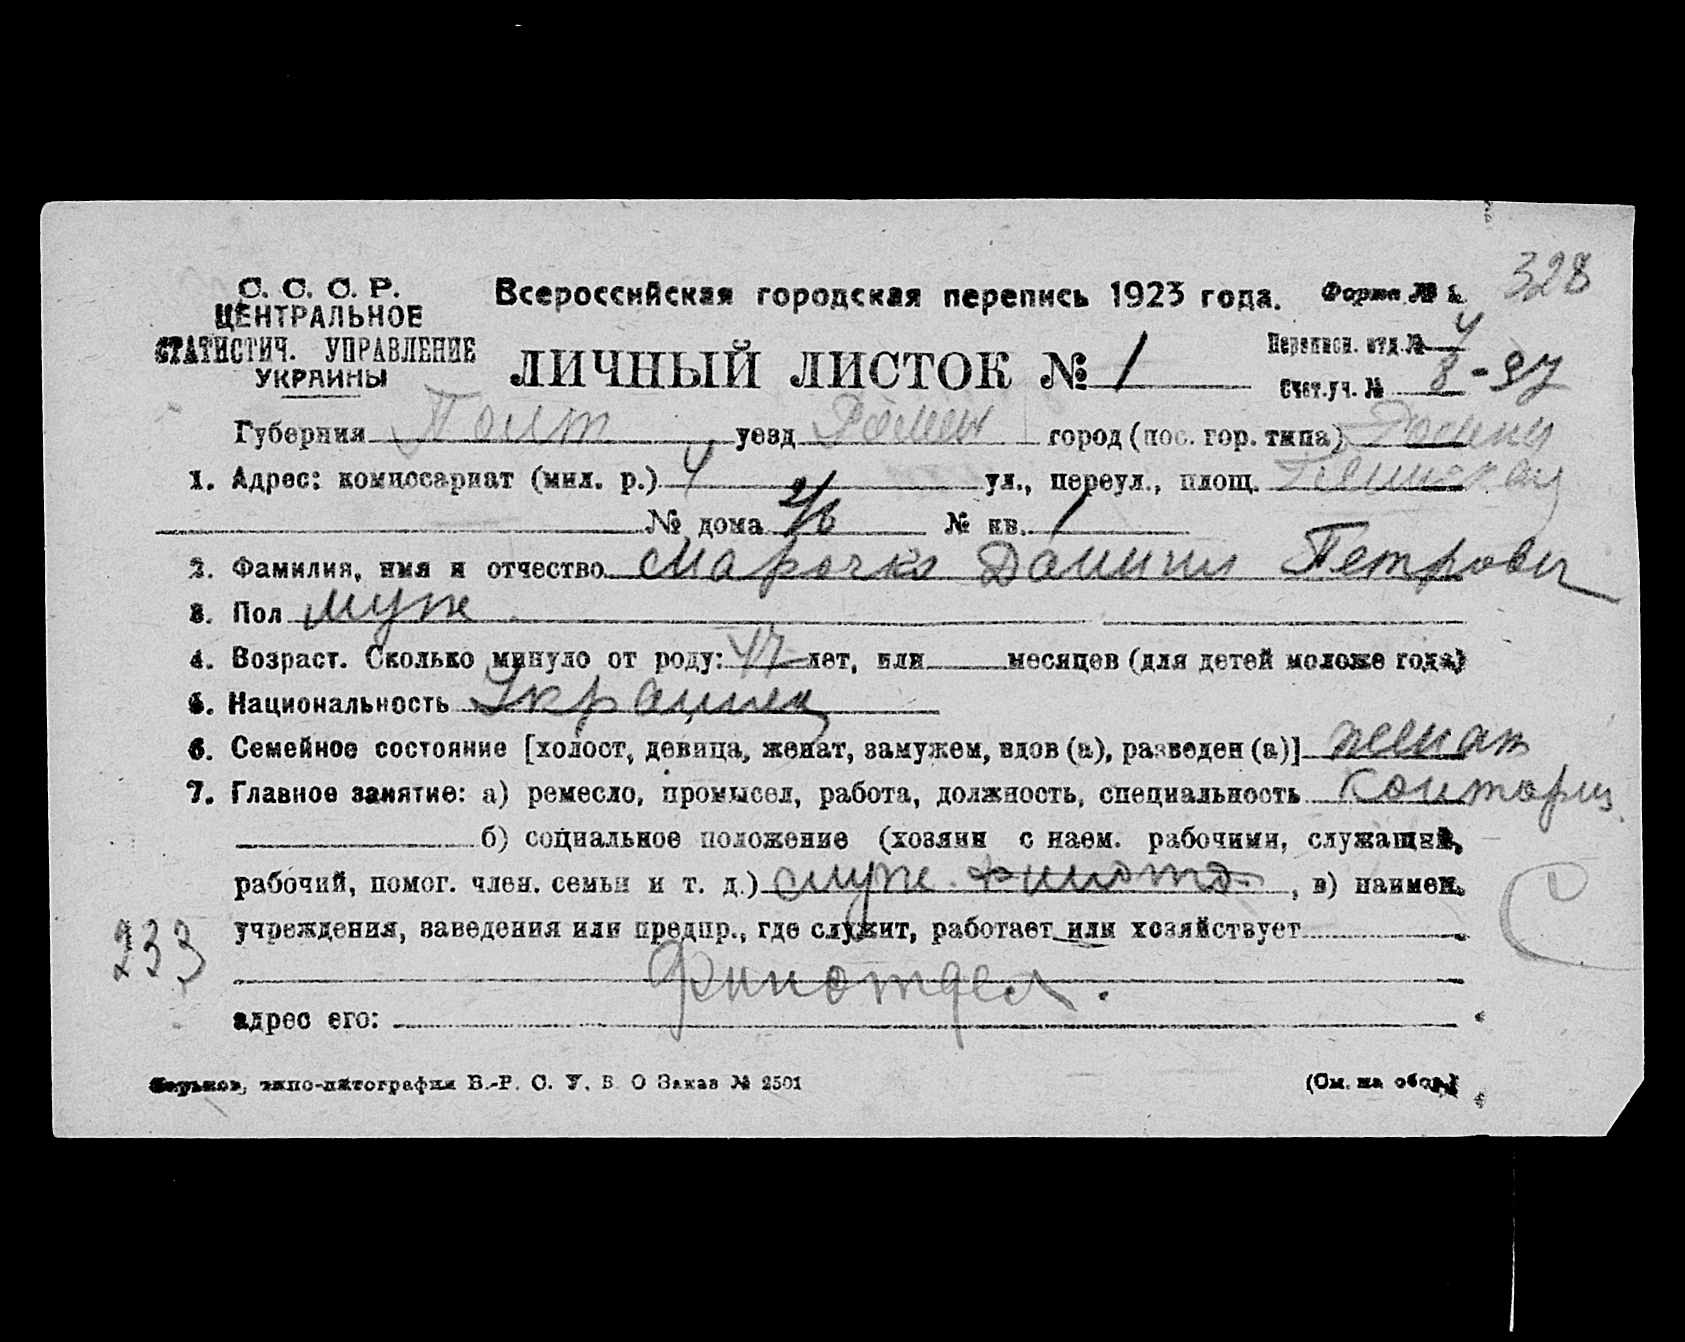 328
С. С. С. Р.
ЦЕНТРАЛЬНОЕ
СТАТИСТИЧ. УПРАВЛЕНИЕ
УКРАИНЫ
Всероссийская городская перепись 1923 года. Форма № 1.
ЛИЧНЫЙ ЛИСТОК № 1
Переписн. отд. № 4
Счет. уч. № 8-97
Губерния Полт уезд Ромен город (пос. гор. типа) Ромны
1. Адрес: комиссариат (мил. р.) 4 ул., переул., площ.
№ дома 2/6 № кв. 1
2. Фамилия, имя и отчество Марочко Даниил Петрович
3. Пол муж
4. Возраст. Сколько минуло от роду: 47 лет, или месяцев (для детей моложе года)
5. Национальность Украинец
6. Семейное состояние [холост, девица, женат, замужем, вдов (а), разведен (а)] женат
7. Главное занятие: а) ремесло, промысел, работа, должность, специальность Конторщ.
б) социальное положение (хозяин с наем. рабочими, служащий,
рабочий, помог. член. семьи и т. д.) служ. финотд. , в) наимен.
учреждения, заведения или предпр., где служит, работает или хозяйствует
233
Финотдел.
адрес его:
Харьков, типо-литография В.-Р. С. У. В. О Заказ № 2501
(См. на обор.)